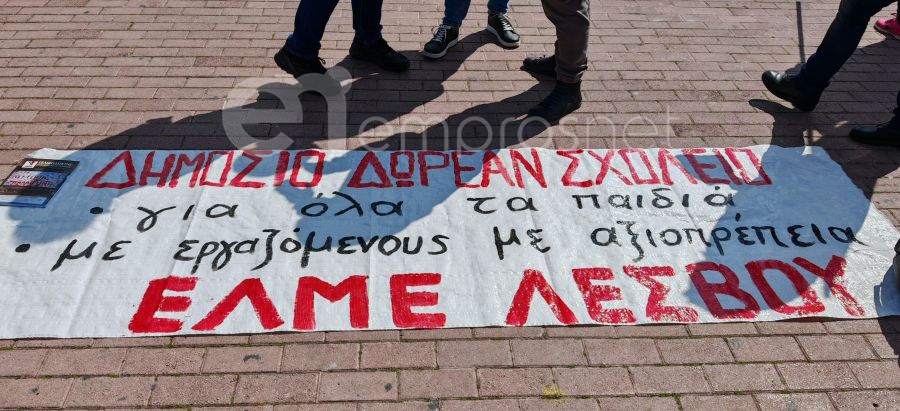 ΔΗΜΟΣΙΟ ΔΩΡΕΑΝ ΣΧΟΛΕΙΟ
• για όλα τα παιδιά
• με εργαζόμενους με αξιοπρέπεια
ΕΛΜΕ ΛΕΣΒΟΥ
emprosnet